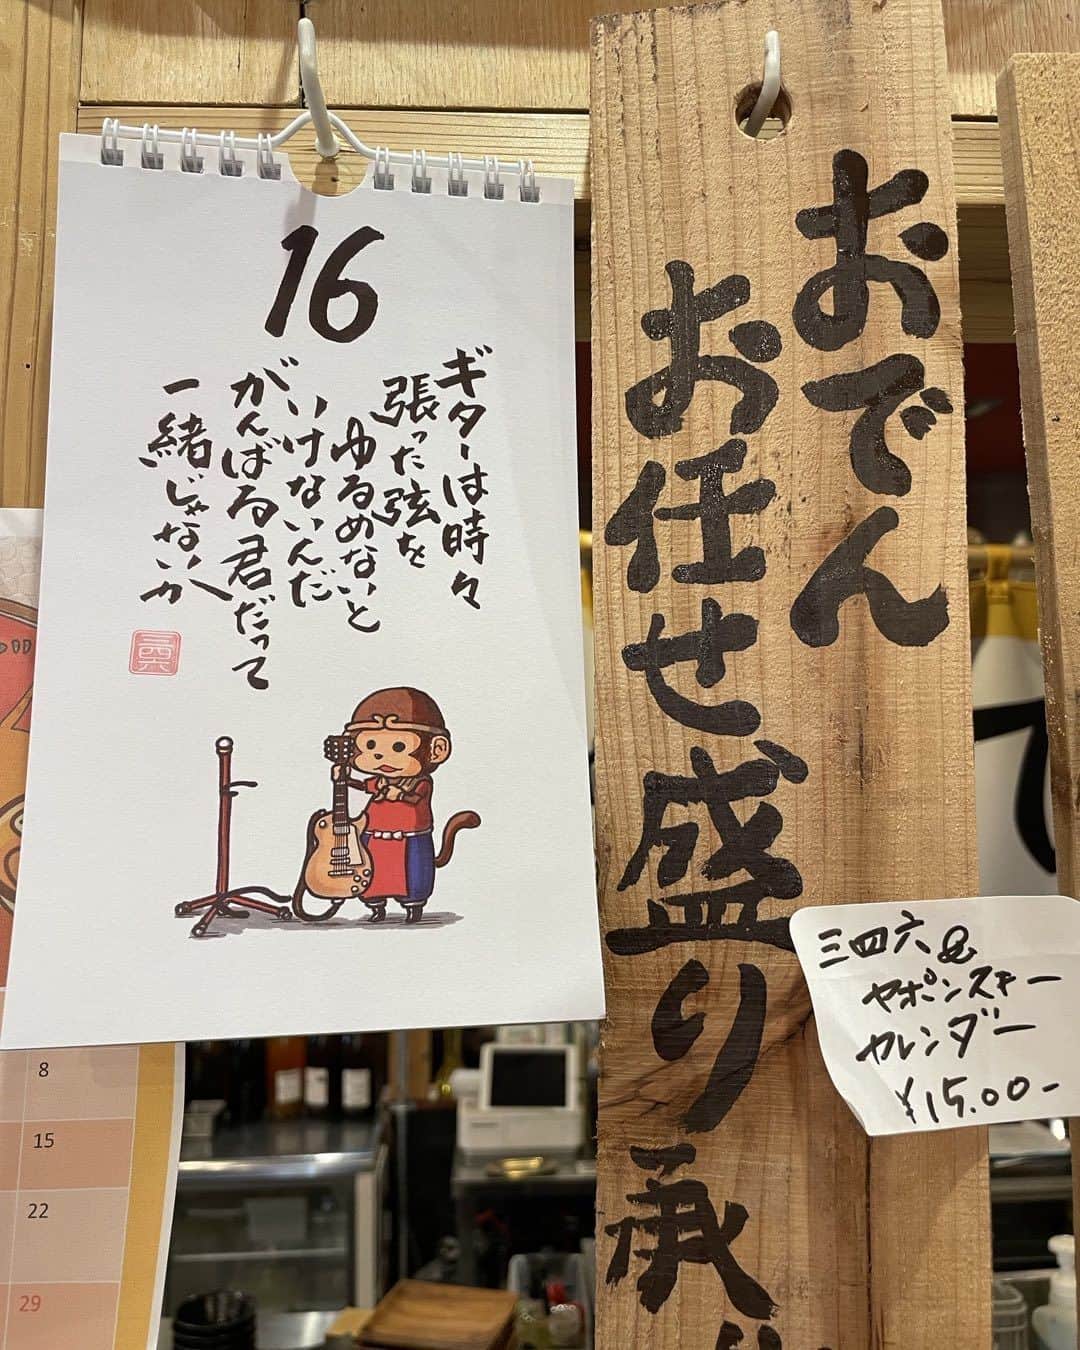 16
ギターは時々
張った弦を
ゆるめないと
いけないんだ
がんばる君だって
一緒じゃないか
三四六
おでん
お任せ盛り承
三四六&
ヤポンスキー
カレンダー
¥15.00-
8
15
22
29